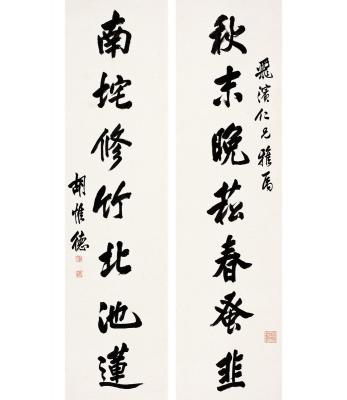 飛濱仁兄雅屬
秋末晚菘春蚤韭
南垞修竹北池蓮
胡惟德